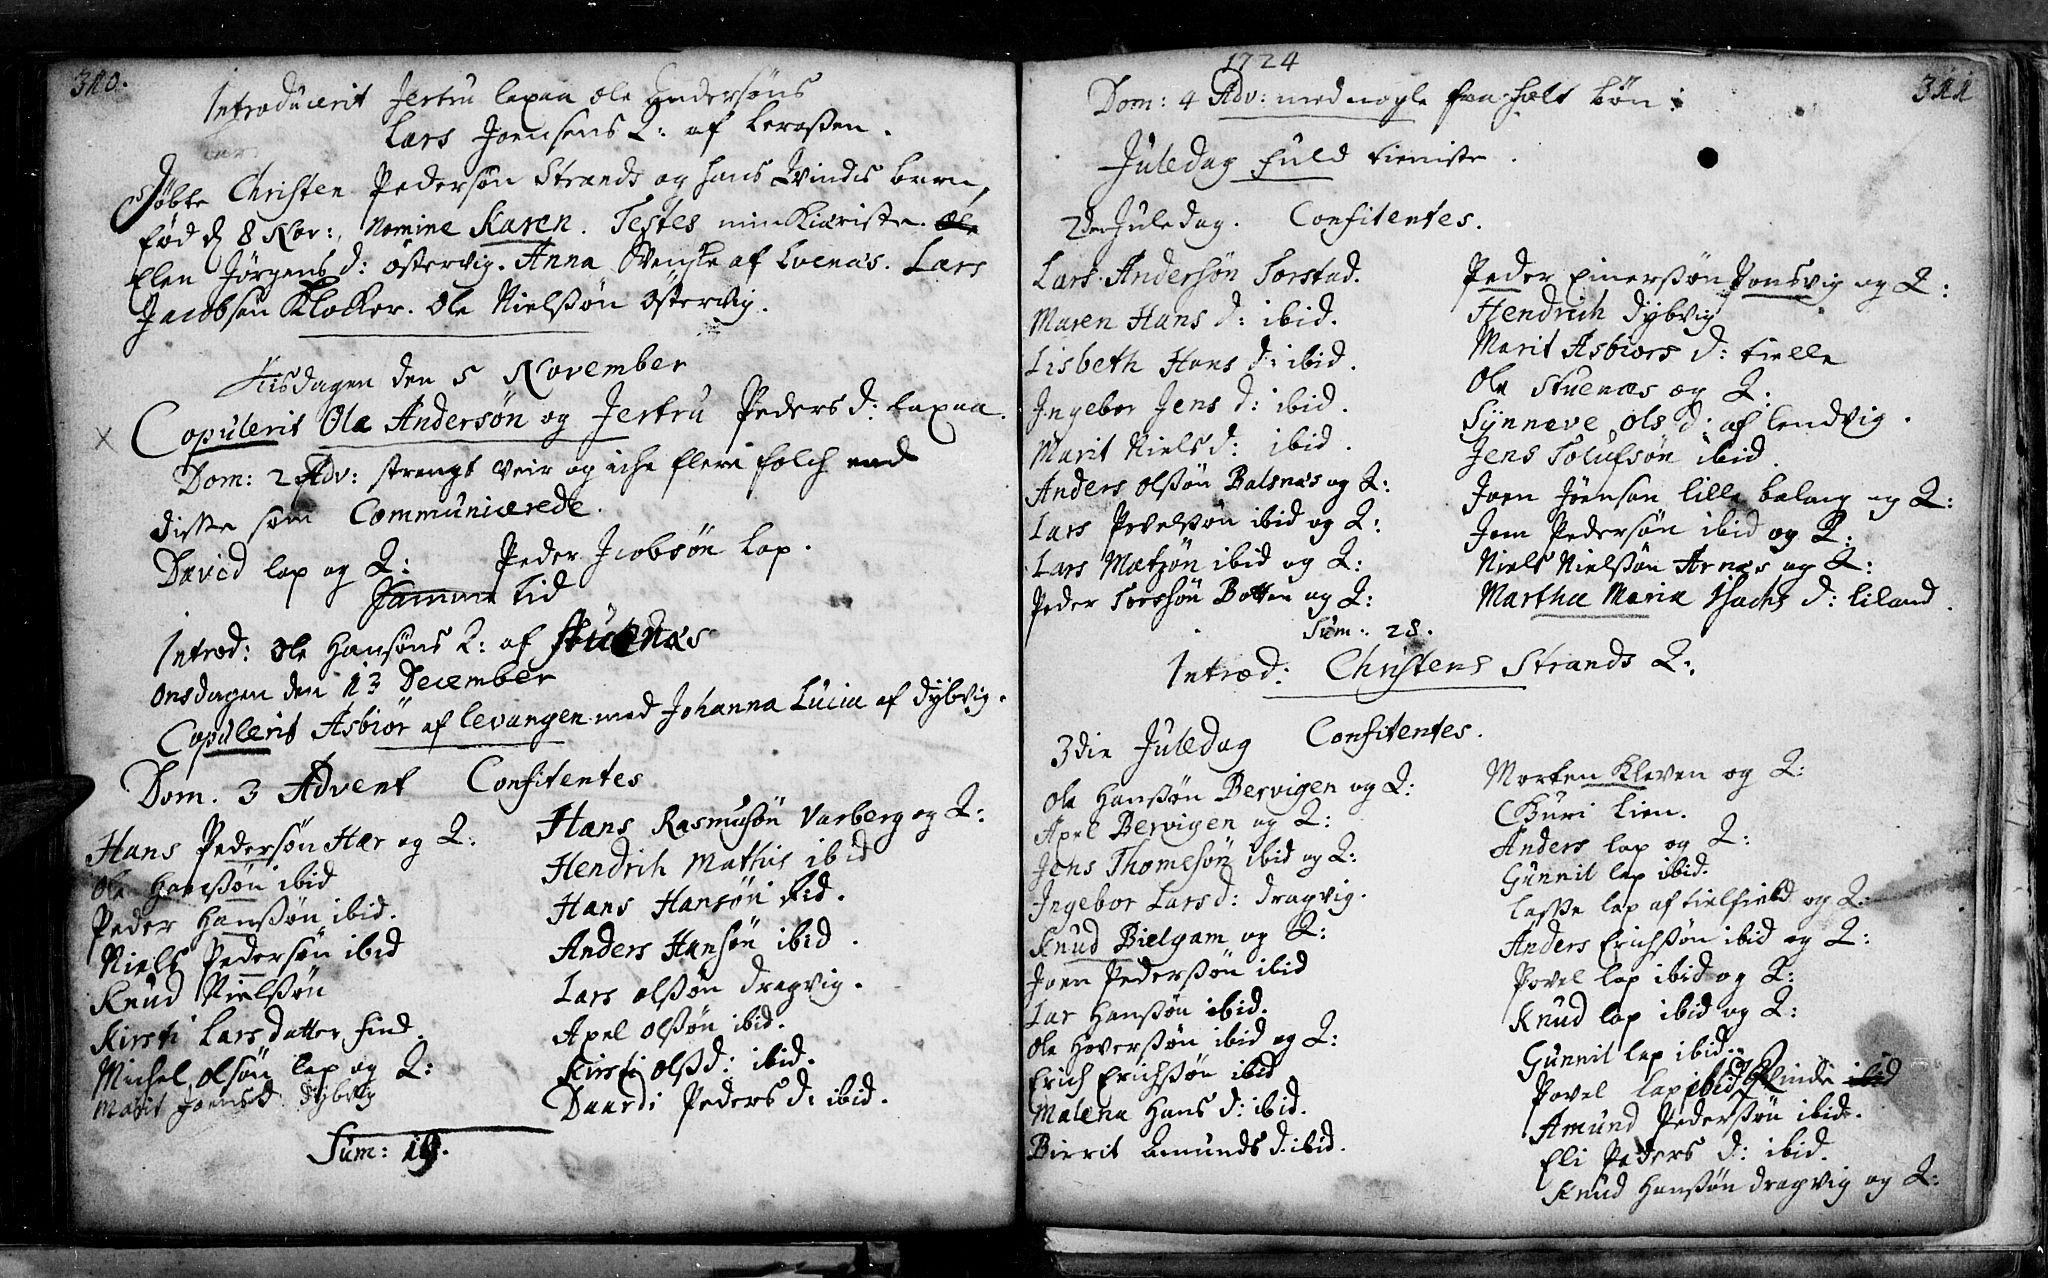 310.
Introducerit Jertru lapaa Ole Andersøns
Lars Joensens Q: af Lerossen.
Døbte Christen Pedersøn Strands og hans Qvindis barn,
fød d 8 Nov:, Nomine Karen. Testes min Kiæriste. Ole
Elen Jørgens d: Østervig. Anna Svenske af Lvenæs. Lars
Jacobsen Klocker. Ole Nielssøn Østervig.
Tisdagen den 5 November
Copulerit Ole Andersøn og Jertru Peders d: lapaa.
Dom: 2 Adv: strengt veir og iche flere folch end
disse som Communicerede.
David lap og Q: Peder Jcobsøn lap.
Samme tid
Introd: Ole Hansøns Q: af Stuenæs
Onsdagen den 13 December
Copulerit Asbiør af Levangen med Johanna Lucia af Dybvig.
Dom. 3 Advent Confitentes
Hans Pedersøn Hær og Q:
Ole Hanssøn ibid
Peder Hanssøn ibid.
Niels Pedersøn ibid
Knud Nielssøn
Kirsti Lars datter find.
Michel Olsøn lap og Q:
Marit Joensd Dybvig
Hans Rasmusøn Varberg og Q:
Hendrich Mathis ibid
Hans Hansøn ibid.
Anders Hansøn ibid.
Lars Olssøn Dragvig.
Axel Olssøn ibid.
Kirsti Olssd: ibid.
Daardi Peders d: ibid.
Sum: 19.
1724
311
Dom: 4 Adv: med nogle faa holt bøn:
Juledag fuld tieniste.
2den Juledag. Confitentes.
Lars Andersøn Torstad.
Maren Hans d: ibid.
Lisbeth Hans d: ibid.
Ingebor Jens d: ibid.
Marit Niels d: ibid.
Anders Olssøn Balsnæs og Q:
Lars Povelssøn ibid og Q:
Lars Matzøn ibid og Q:
Peder Torssøn Botten og Q:
Peder Einerssøn Ponsvig og Q:
Hendrich Dybvig
Marit Asbiørs d: tielle
Ole Stuenæs og Q.
Synneve Ols d: af Lendvig.
Jens Tolufsøn ibid.
Joen Jøenson lille balang og Q:
Joen Pedersøn ibid og Q:
Niels Nielssøn Arnæs og Q:
Martha Maria Isachs d: Liland.
Sum: 28.
Introd: Christens Strands Q:
3die Juledag Confitentes.
Ole Hanssøn Bervigen og Q:
Axel Bervigen og Q:
Jens Thomesøn ibid og Q:
Ingebor Lars d: Dragvig.
Knud Bielgam og Q:
Joen Pederssøn ibid
Lar Hanssøn ibid.
Ole Hoverssøn ibid og Q:
Erich Erichssøn ibid
Malena Hans d: ibid.
Birrit Amunds d: ibid.
Morten Kleven og Q:
Guri Lien.
Anders lap og Q:
Gunnil lap ibid.
Lasse lap af tielfield og Q:
Anders Erichssøn ibid og Q:
Povel lap ibid og Q:
Knud lap ibid og Q:
Gunnil lap ibid.
Povel lap ibid Qvinde ibid
Amund Pederssøn ibid.
Eli Peders d: ibid.
Knud Hanssøn Dragvig og Q: